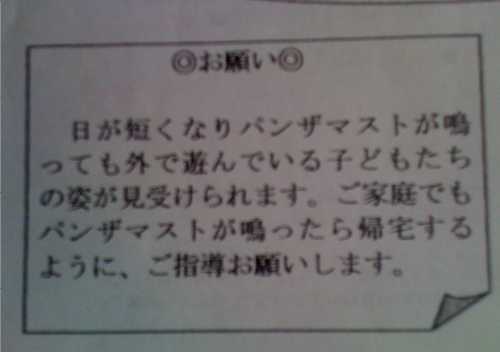 ◎お願い◎
日が短くなりバンザマストが鳴
っても外で遊んでいる子どもたち
の姿が見受けられます。ご家庭でも
バンザマストが鳴ったら帰宅する
ように、ご指導お願いします。